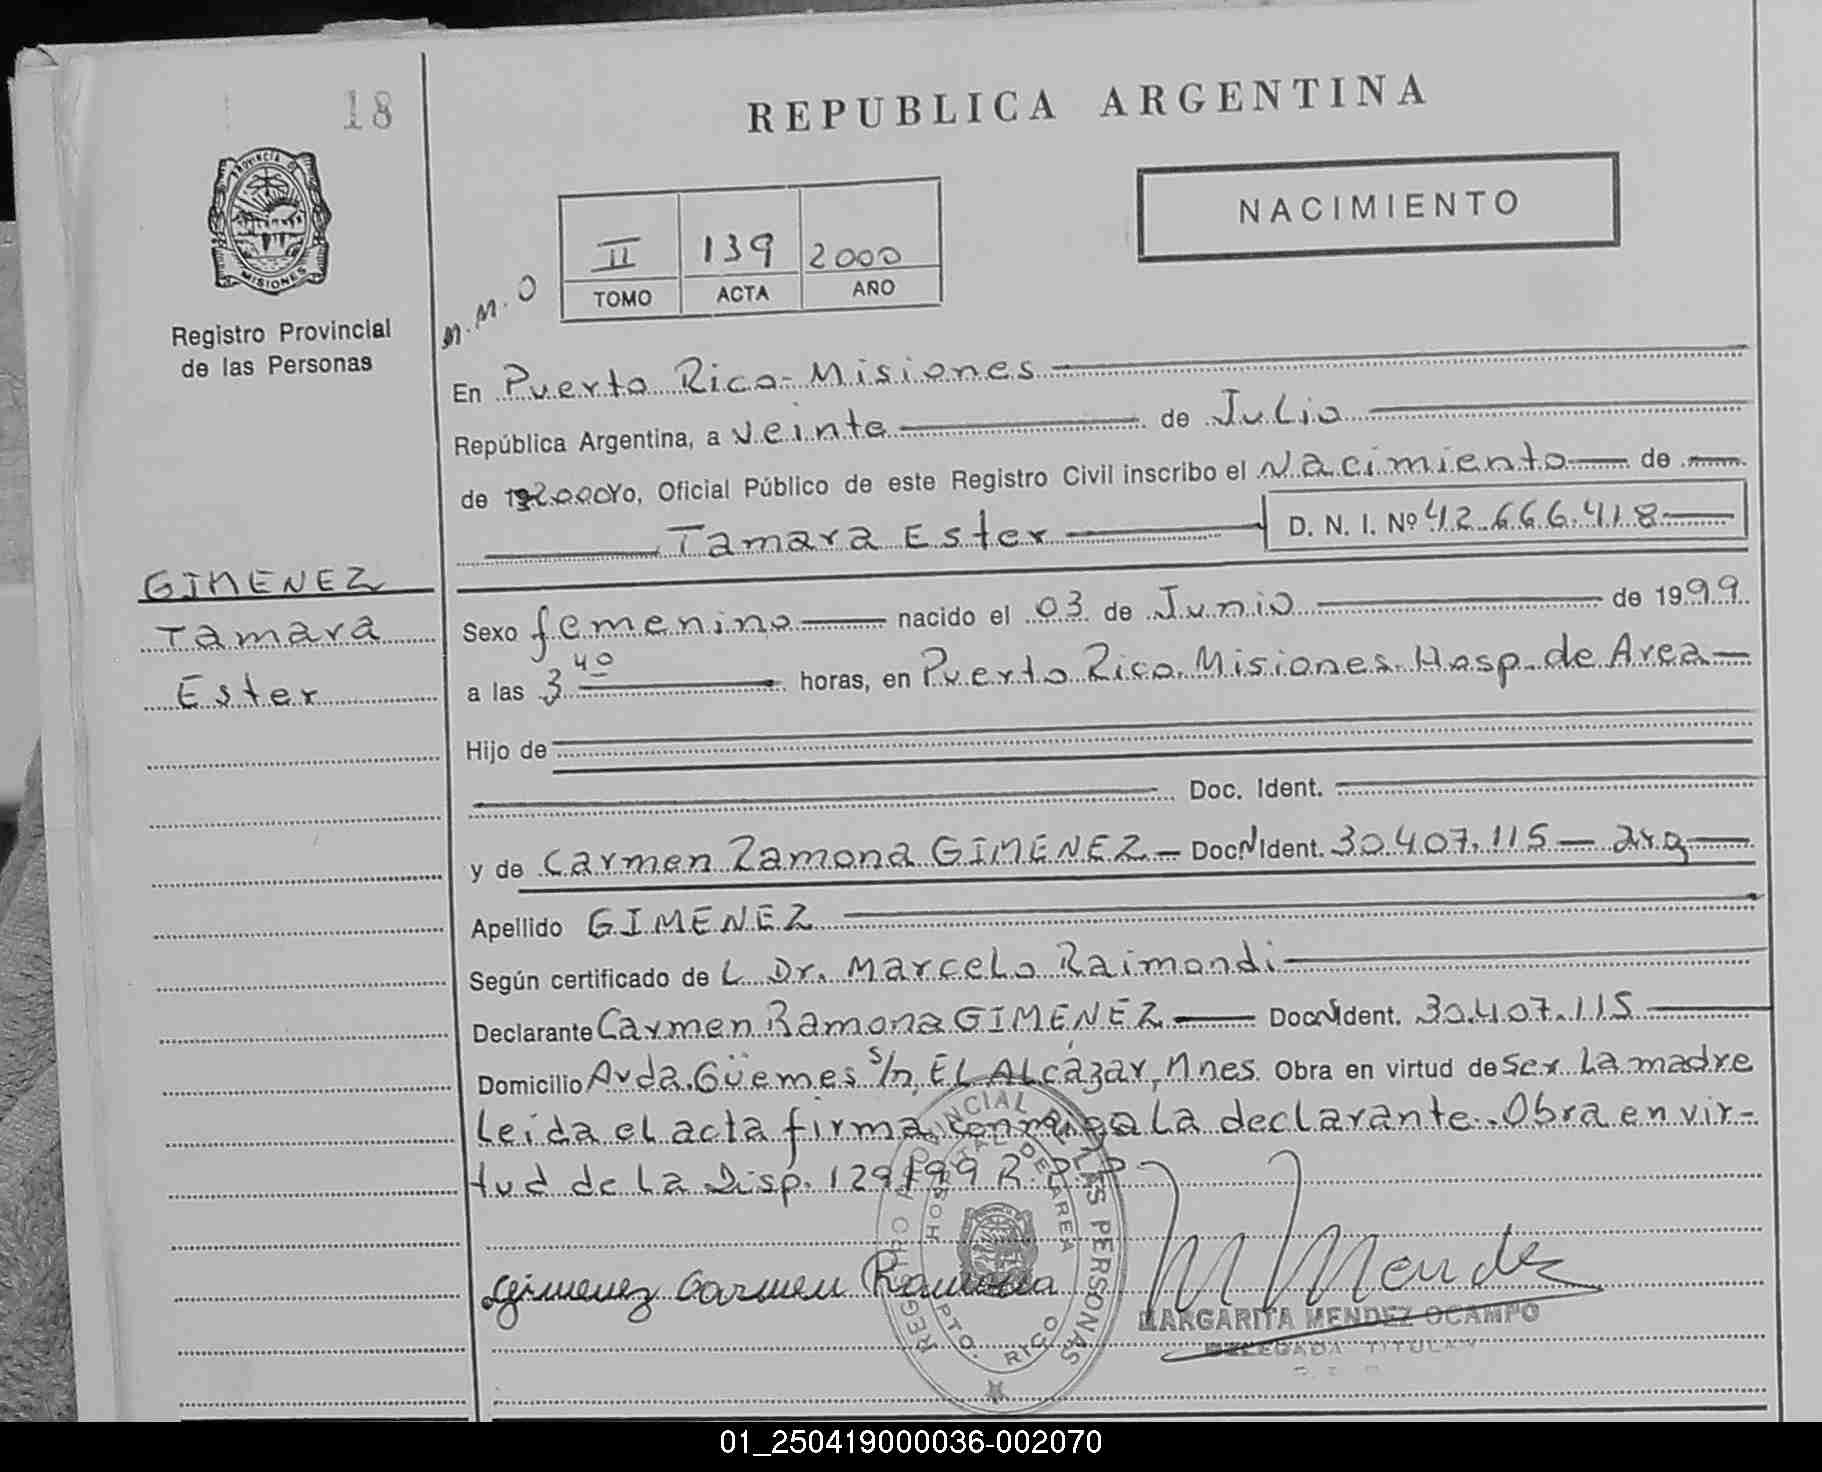 18
REPUBLICA ARGENTINA
NACIMIENTO
PROVINCIA DE
MISIONES
II 139 2000
TOMO ACTA AÑO
M.M.O
Registro Provincial
de las Personas
En Puerto Rico - Misiones
República Argentina, a veinte de Julio
de 192000 Yo, Oficial Público de este Registro Civil inscribo el Nacimiento de
Tamara Ester D. N. I. Nº 42.666.418
GIMENEZ
Tamara
Ester
Sexo femenino nacido el 03 de Junio de 1999
a las 3 40 horas, en Puerto Rico. Misiones. Hosp. de Area
Hijo de
Doc. Ident.
y de Carmen Ramona GIMENEZ - Doc.N Ident. 30.407.115 - arg
Apellido GIMENEZ
Según certificado de L Dr. Marcelo Raimondi
Declarante Carmen Ramona GIMENEZ Doc.N Ident. 30.407.115
Domicilio Avda. Güemes s/n, EL Alcázar, Mnes. Obra en virtud de ser la madre
Leída el acta firma conmigo la declarante. Obra en vir-
tud de la Disp. 129/99 R.P.P
REGISTRO PROVINCIAL DE LAS PERSONAS
HOSPITAL DE AREA
PTO. RICO
Gimenez Carmen Ramona
M Mendez
MARGARITA MENDEZ OCAMPO
DELEGADA TITULAR
01_250419000036-002070